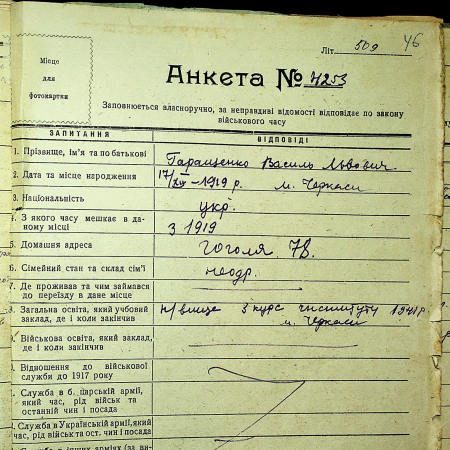 Літ. 509
46
Місце
для
фотокартки
Анкета № 4253
Заповнюється власноручно, за неправдиві відомості відповідає по закону
військового часу
ЗАПИТАННЯ ВІДПОВІДІ
1. Прізвище, ім'я та по батькові Гаращенко Василь Львович
2. Дата та місце народження 17/XII-1919 р. м. Черкаси
3. Національність укр.
4. З якого часу мешкає в да-
ному місці З 1919
5. Домашня адреса Гоголя 78.
6. Сімейний стан та склад сім'ї неодр.
7. Де проживав та чим займався
до переїзду в дане місце
8. Загальна освіта, який учбовий
заклад, де і коли закінчив н/вища 3 курс інституту 1941 р.
м. Черкаси
9. Військова освіта, який заклад,
де і коли закінчив
10. Відношення до військової
служби до 1917 року
Служба в б. царській армії,
який час, рід військ та
останній чин і посада
Служба в Українській армії, який
час, рід військ та ост. чин і посада